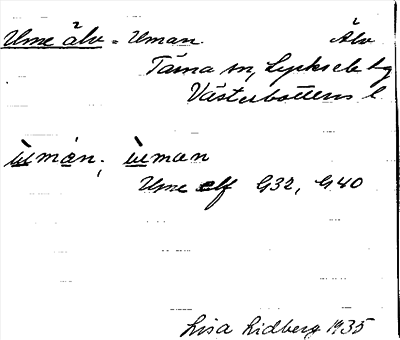 Ume älv = Uman. Älv
Tärna sn, Lycksele lg
Västerbottens l
ùmán; ùman
Ume elf G32, G40
Lisa Lidberg 1935